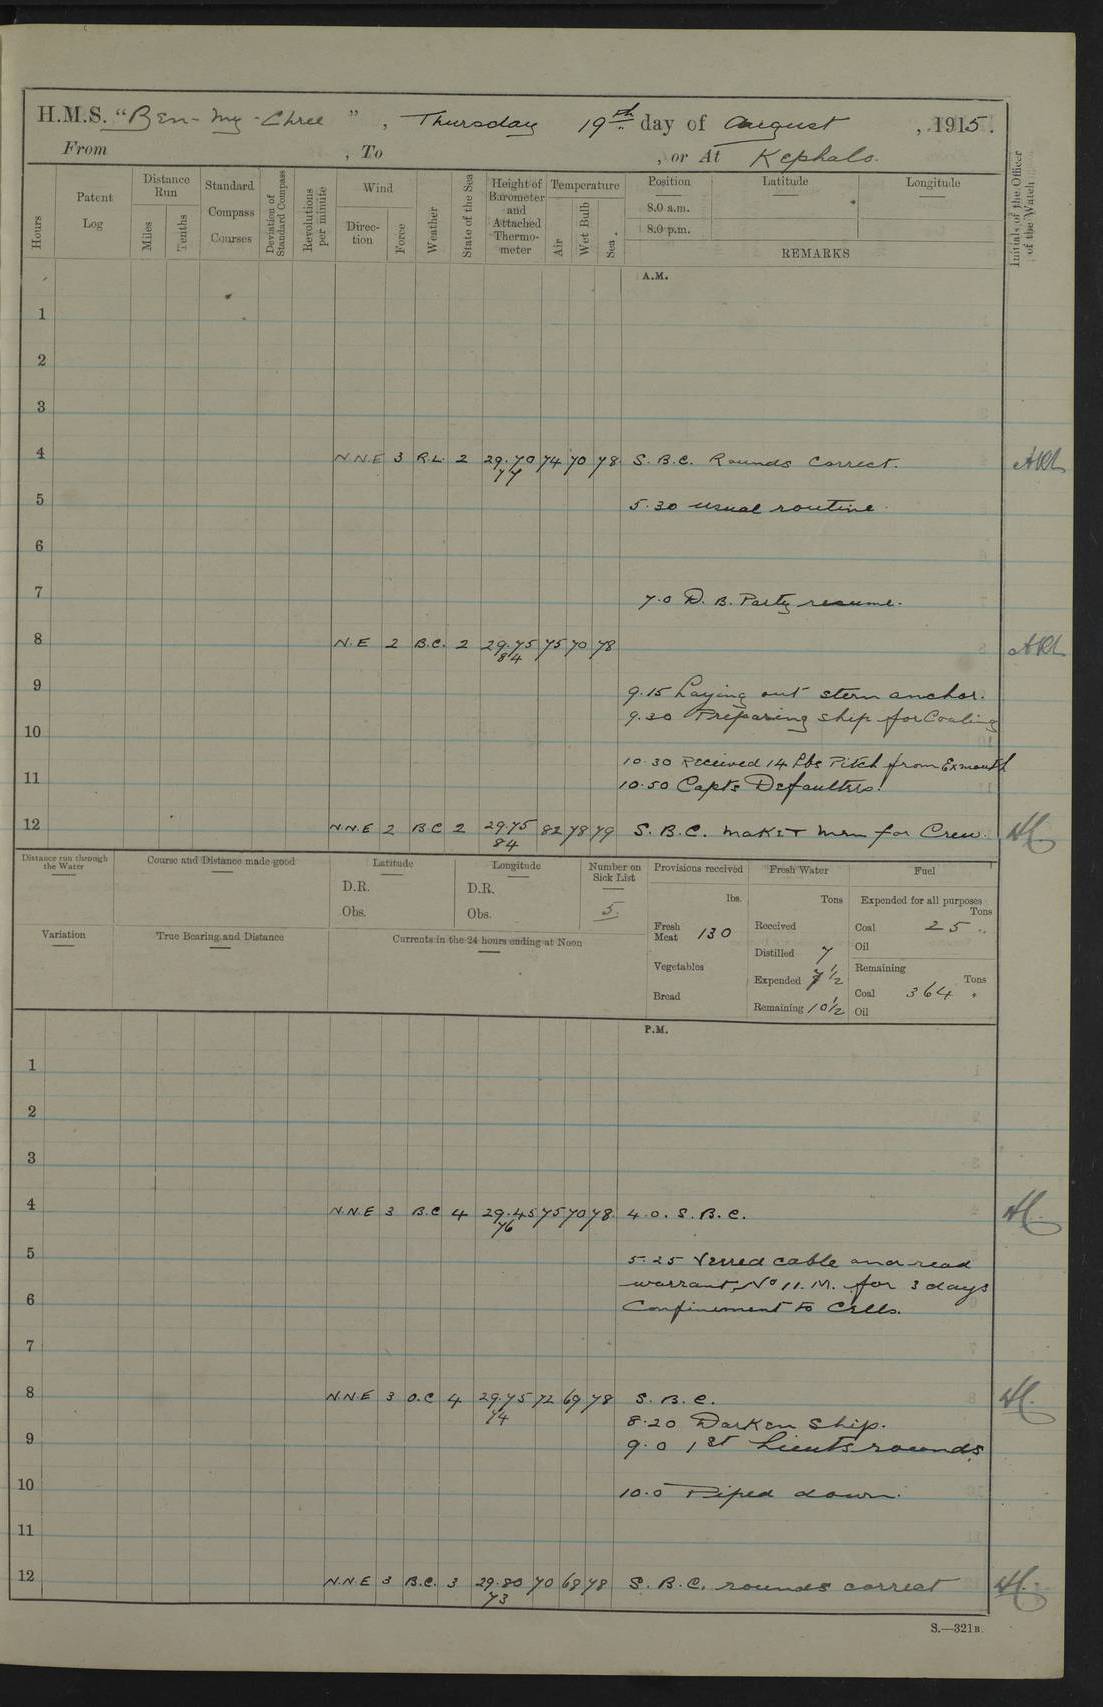 H.M.S. "Ben-My-Chree", Thursday 19th day of August, 1915.
From , To , or At Kephalo.
Hours
Patent Log
Distance Run
Miles
Tenths
Standard Compass Courses
Deviation of Standard Compass
Revolutions per minute
Wind
Direction
Force
Weather
State of the Sea
Height of Barometer and Attached Thermometer
Temperature
Air
Wet Bulb
Sea.
Position
8.0 a.m.
8.0 p.m.
Latitude
Longitude
REMARKS
Initials of the Officer of the Watch
A.M.
1
2
3
4 N.N.E 3 R.L. 2 29.70 74 70 78 S.B.C. Rounds correct.
77
5 5.30 usual routine.
6
7 7.0 D.B. Party resume.
8 N.E 2 B.C. 2 29.75 75 70 78
84
9 9.15 Laying out stern anchor.
9.30 Preparing ship for Coaling
10
10.30 Received 14 lbs Pitch from Exmouth
11 10.50 Capts Defaulters.
12 N.N.E 2 B C 2 29.75 82 78 79 S.B.C. Men for Crew.
84
Distance run through the Water
Course and Distance made good
Latitude
D.R.
Obs.
Longitude
D.R.
Obs.
Number on Sick List
5.
Provisions received
lbs.
Fresh Meat 130
Vegetables
Bread
Fresh Water
Tons
Received
Distilled 7
Expended 7 1/2
Remaining 10 1/2
Fuel
Expended for all purposes
Tons
Coal 25 "
Oil
Remaining
Tons
Coal 364 "
Oil
Variation
True Bearing and Distance
Currents in the 24 hours ending at Noon
P.M.
1
2
3
4 N.N.E 3 B.C 4 29.45 75 70 78 4.0. S.B.C.
76
5 5.25 Veered cable and read
warrant, No 11. M. for 3 days
6 Confinement to Cells.
7
8 N.N.E 3 O.C 4 29.75 72 69 78 S.B.C.
74
8.20 Darken Ship.
9 9.0 1st Lieuts rounds
10 10.0 Piped down.
11
12 N.N.E 3 B.C. 3 29.80 70 68 78 S.B.C. rounds correct
73
S.—321B.